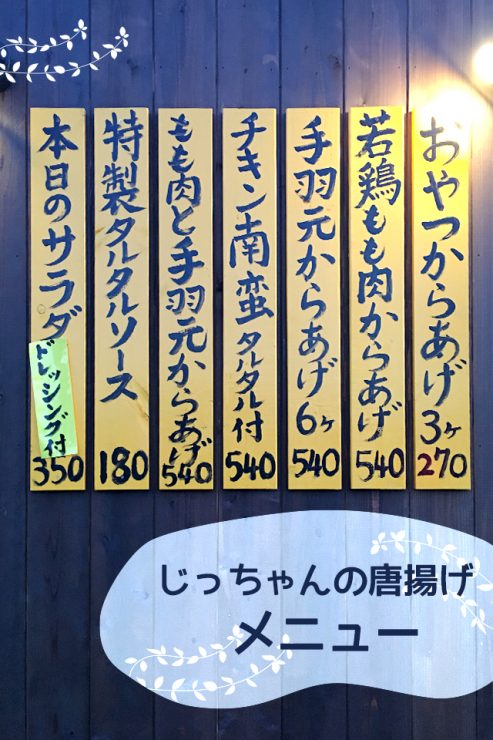 おやつからあげ3ヶ
270
若鶏もも肉からあげ
540
手羽元からあげ6ヶ
540
チキン南蛮タルタル付
540
もも肉と手羽元からあげ
540
特製タルタルソース
180
本日のサラダ
ドレッシング付
350
じっちゃんの唐揚げ
メニュー